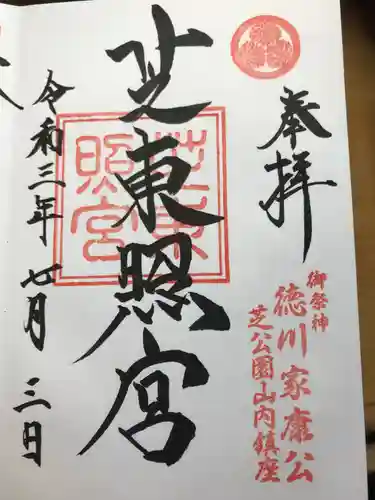 奉拝
御祭神
徳川家康公
芝公園山内鎮座
芝東照宮
芝東
照宮
令和三年七月三日